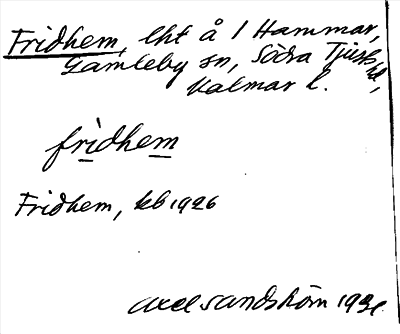 Fridhem, lht å 1 Hammar,
Gamleby sn, Södra Tjust hd,
Kalmar l.
fridhem
Fridhem, kb 1926
Axel Sandström